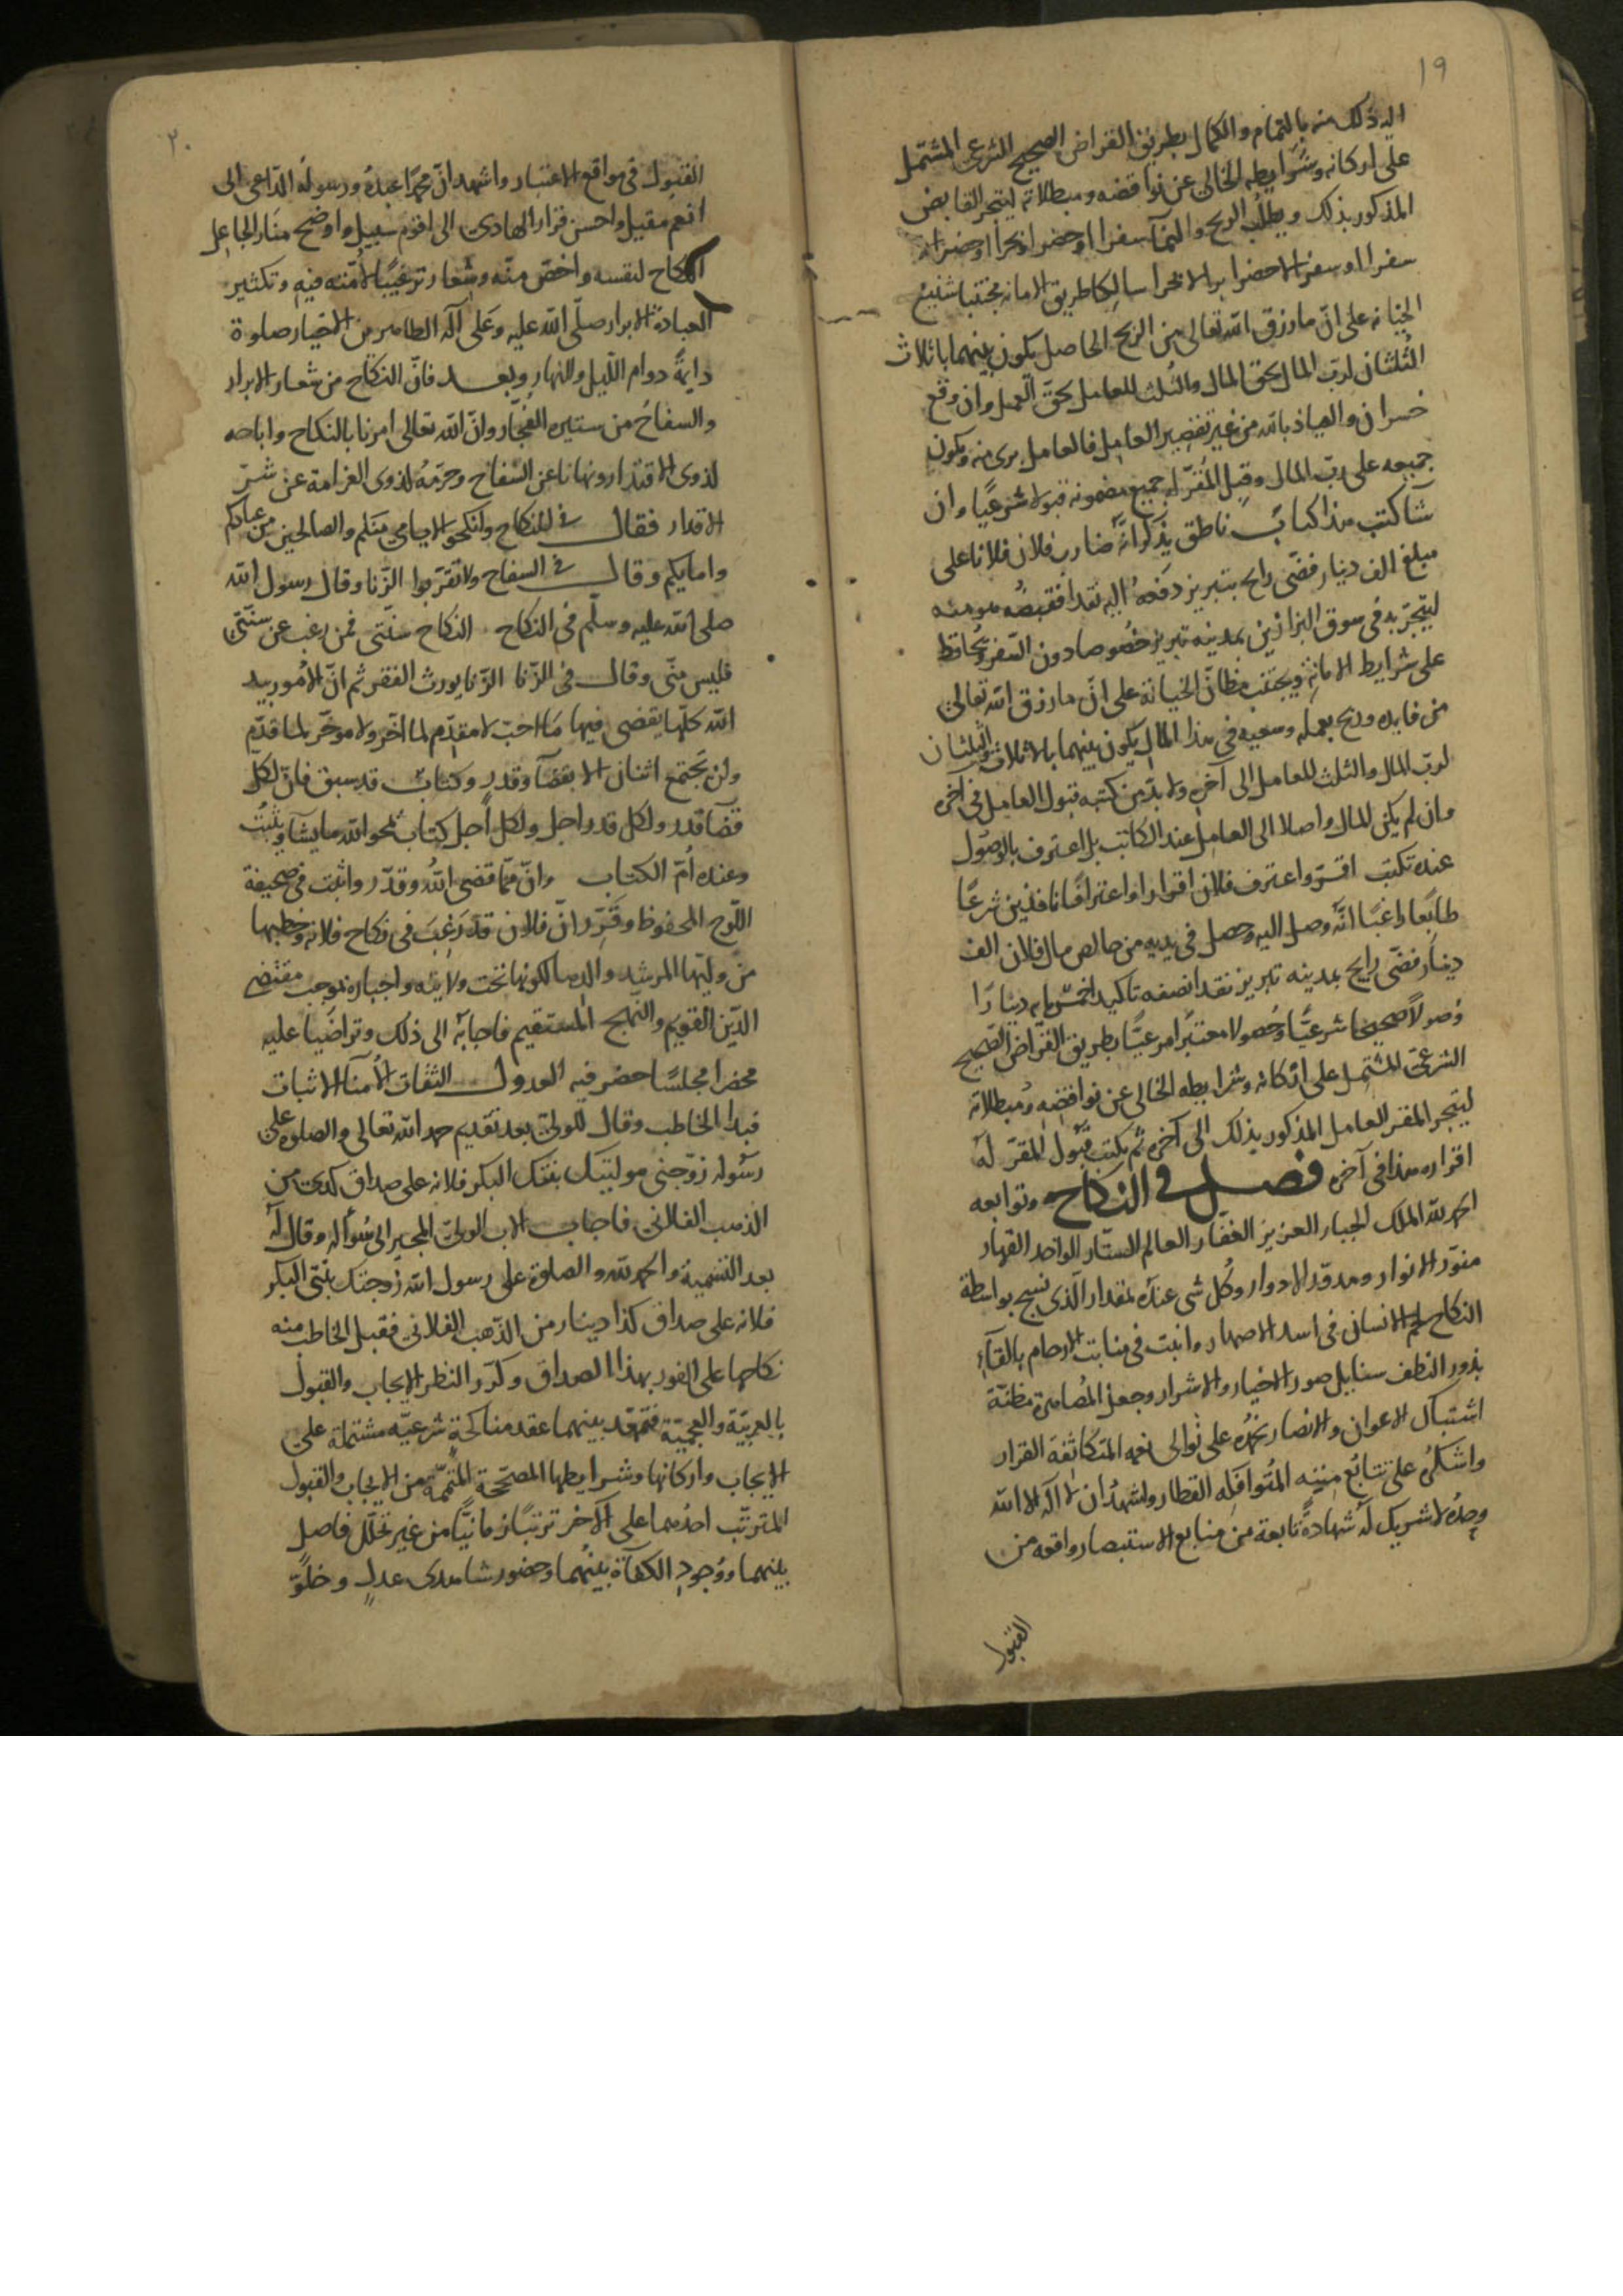 ١٩
اليه ذلك منه بالتمام والكمال بطريق القراض الصحيح الشرعى المشتمل
على اركانه وشرايطه الخالى عن نواقضه ومبطلاته ليتجر القابض
المذكور بذلك ويطلب الربح والنمآ سفرا او حضرا او بحرا او حضرا لا
سفرا او سفرا لا حضرا برا لا بحرا سالكا طريق الامانه مجتنبا شنيع
الخيانه على انّ ما رزق الله تعالى من الربح الحاصل يكون بينهما باثلاث
الثلثان لربّ المال بحق المال والثلث للعامل بحق العمل وان وقع
خسران والعياذ بالله من غير تقصير العامل فالعامل برى منه ويكون
جميعه على رب المال وقبل المُقرّ له جميع مضمونه قبولا شرعيًا وان
شا كتب هذا كتابٌ ناطق بذكر انّه ضارب فلان فلانا على
مبلغ الف دينار فضّى رايج بتبريز دفعه اليه نقدا فقبضه هو منه
ليتجر به فى سوق البزازين بمدينه تبريز خصوصا دون السفر ويحافظ
على شرايط الامانه ويجتنب مظانّ الخيانة على انّ ما رزق الله تعالى
من فايده وربح بعمله وسعيه فى هذا المال يكون بينهما بالاثلاث والثلثان
لربّ المال والثلث للعامل الى آخره ولا بدّ من كتبه قبول العامل فى آخره
وان لم يكن المال واصلا الى العامل عند الكاتب بل اعترف بالوصول
عنده تكتب اقرّ واعترف فلان اقرارا واعترافًا نافذين شرعًا
طايعًا راغبًا انّه وصل اليه وحصل فى يديه من خالص مال فلان الف
دينار فضّى رايج بمدينه تبريز نقدا نصفه تاكيدا خمس مايه دينارًا
وُصولاً صحيحا شرعيًّا وحُصولا معتبرًا مرعيًّا بطريق القراض الصحيح
الشرعى المشتمل على اركانه وشرايطه الخالى عن نواقضه ومُبطلاته
ليتجر المقر للعامل المذكور بذلك الى آخره ثم يكتب قبول المقرّ له
اقراره هذا فى آخره فصل فى النكاح وتوابعه
الحمد لله الملك الجبار العزيز الغفار العالم الستّار الواحد القهار
منوّر الانوار ومدوّر الادوار وكُل شى عنده بمقدار الّذى نسج بواسطة
النكاح لحم الانسان فى اسد الاصهار وانبت فى منابت الارحام بالقآءِ
بذور النطف سنابل صور الاخيار والاشرار وجعل المُصاهرة مظنّة
اشتباك الاعوان والانصار نحمدُه على توالى نعمه المتكاثفة القرار
واشكرُه على تتابُع مننه المُتوافله القطار واشهدُ ان لا اله الا الله
وحدُه لا شريك له شهادةً نابعة من منابع الاستبصار واقعه من
القبول
٢٠
القبول فى مواقع الاعتبار واشهد انّ محمّدًا عبدُه ورسوله الدّاعى الى
انعم مقيل واحسن قرار الهادى الى اقوم سبيل واوضح منار الجاعل
النكاح لنفسه واخصّ منّه وشعار ترغيبًا لأمّته فيه وتكثير
العبادة الابرار صلّى الله عليه وعَلى آله الطاهرين الاخيار صلوة
دايمةً دوام اللّيل والنهار وبعد فانّ النكاح من شعار الابرار
والسفاحُ من سيره الفجّار وانّ الله تعالى امرنا بالنكاح واباحه
لذوى الاقتدار ونهانا عن السّفاح وحرّمهُ لذوى الغرامة عن شرّ
الاقدار فقال فى النكاح وانكحوا الايامى منكم والصالحين من عبادكم
وامايكم وقال فى السفاح ولا تقربوا الزّنا وقال رسول الله
صلى الله عليه وسلّم فى النكاح النكاح سنّتى فمن رغب عن سنّتى
فليس منّى وقال فى الزّنا الزّنا يورث الفقر ثم انّ الاُمور بيد
الله كلّها يقضى فيها مَا احبّ لا مقدّم لما اخّر ولا موخّر لما قدّم
ولن يجتمع اثنان الا بقضآ وقدرٍ وكتابٍ قد سبق فانّ لكل
قضآ قدر ولكل قدر اجل ولكل اجل كتابٌ يمحو الله ما يشآ ويثبتُ
وعنده أمّ الكتاب وانّ ممّا قضى اللّه وقدّر واثبت فى صحيفة
اللّوح المحفوظ وقرّر انّ فلان قد رَغِبَ فى نكاح فلانه وخطبها
من وليّها المرشد والدها لكونها تحت ولايته واجباره بموجب مقتضى
الدّين القويم والنهج المستقيم فاجابَهُ الى ذلك وتراضَيا عليه
محضرا مجلسًا حضر فيه العدول الثقات الأمنآ الاثبات
فبدا الخاطب وقال للولى بعد تقديم حمد الله تعالى والصلوة على
رسُوله زوّجنى موليتك بنتك البكر فلانه على صداق كذى من
الذهب الفلانى فاجاب الاب الولىّ المجبر الى سُواله وقال له
بعد التّسمية والحمد لله والصلوة على رسول الله زوجتك بنتى البكر
فلانه على صداق كذا دينار من الذّهب الفلانى فقبل الخاطب منه
نكاحها على الفور بهذا الصداق وكرّر النظر الايجاب والقبول
بالعربيّة والعجميّة فتعقد بينهما عقد مناكحةٍ شرعيّه مشتملة على
الايجاب واركانها وشرايطها المصحّحة المتمّمة من الايجاب والقبول
المترتّب احدهما على الآخر ترتبًا زمانيًّا من غير تخلّل فاصل
بينهما ووُجودِ الكفآة بينهُما وحضور شاهدى عدلٍ وخلوّ